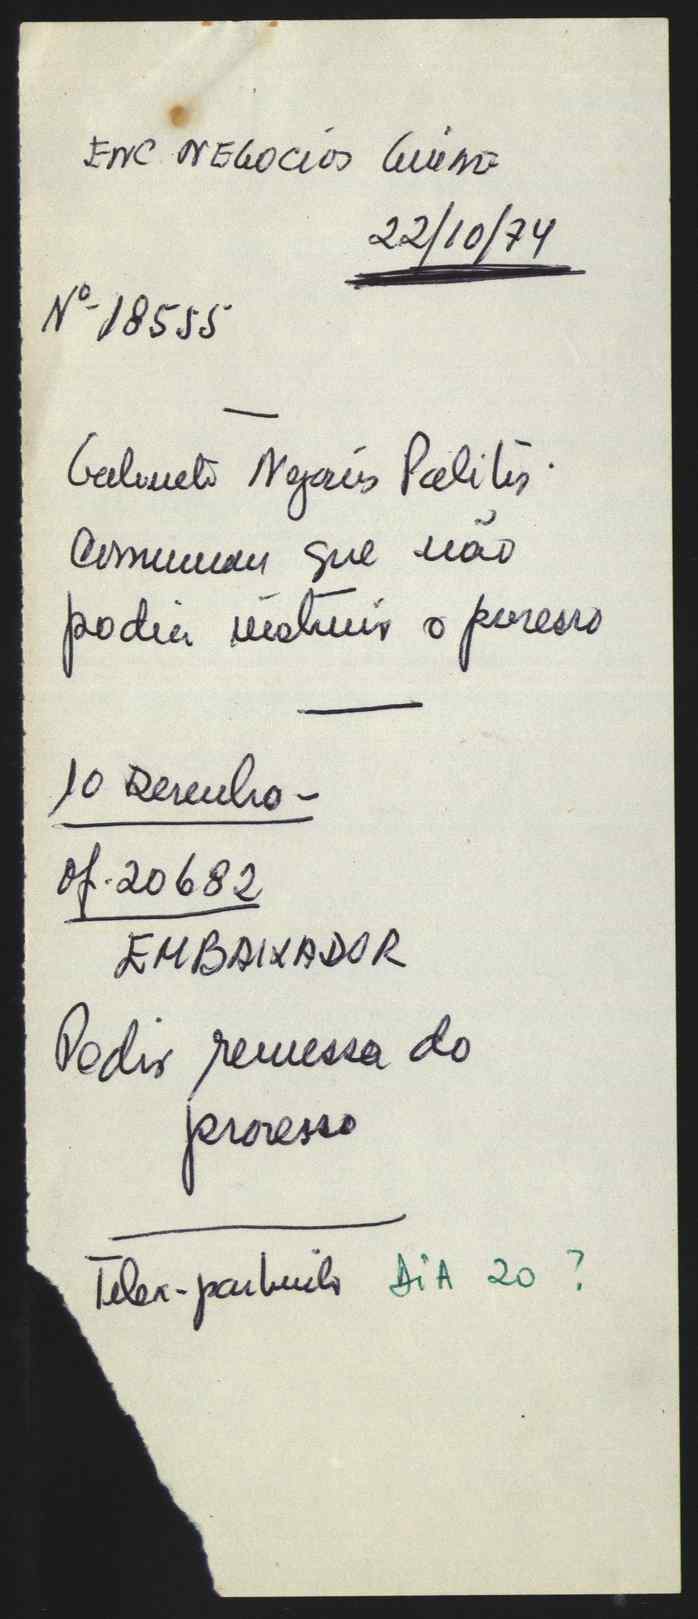 ENC NEGOCIOS Guiné
22/10/74
Nº-18555
Gabinete Negócios Polits.
Comunicou que não
podia instruir o processo
10 Dezembro-
Of. 20682
EMBAIXADOR
Pedir remessa do
processo
Telex- DIA 20 ?